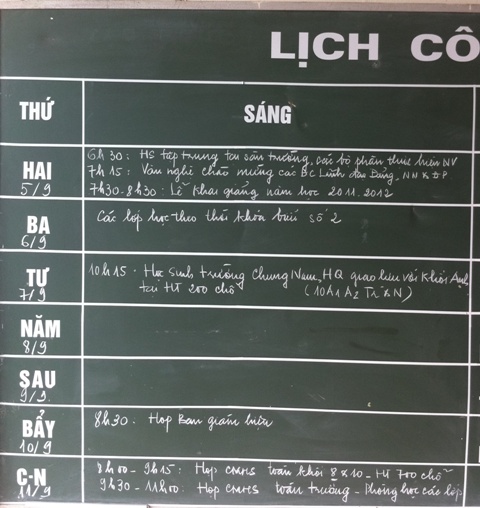 LỊCH CÔ
THỨ
SÁNG
HAI
5/9
6h30: HS tập trung tại sân trường, các bộ phận thực hiện NV
7h15: Văn nghệ chào mừng các ĐC Lãnh đạo Đảng, NN & ĐP.
7h30-8h30: Lễ khai giảng năm học 2011.2012
BA
6/9
Các lớp học theo thời khóa biểu số 2
TƯ
7/9
10h15. Học sinh trường Chung Nam, HQ giao lưu với khối Anh
tại HT 200 chỗ (10A1 A2 Tr & N)
NĂM
8/9
SAU
9/9
BẨY
10/9
8h30. Họp Ban giám hiệu
C.N
11/9
8h00 - 9h15: Họp CMHS toàn khối 8 & 10 - HT 700 chỗ
9h30 - 11h00: Họp CMHS toàn trường - Không học các lớp